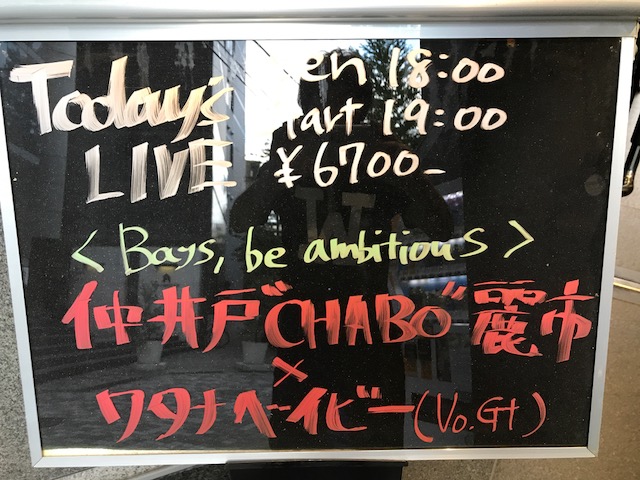 Today's Open 18:00
Start 19:00
LIVE ¥6700-
<Bays, be ambitious>
仲井戸"CHABO"麗市
×
ワタナベイビー(Vo.Gt)